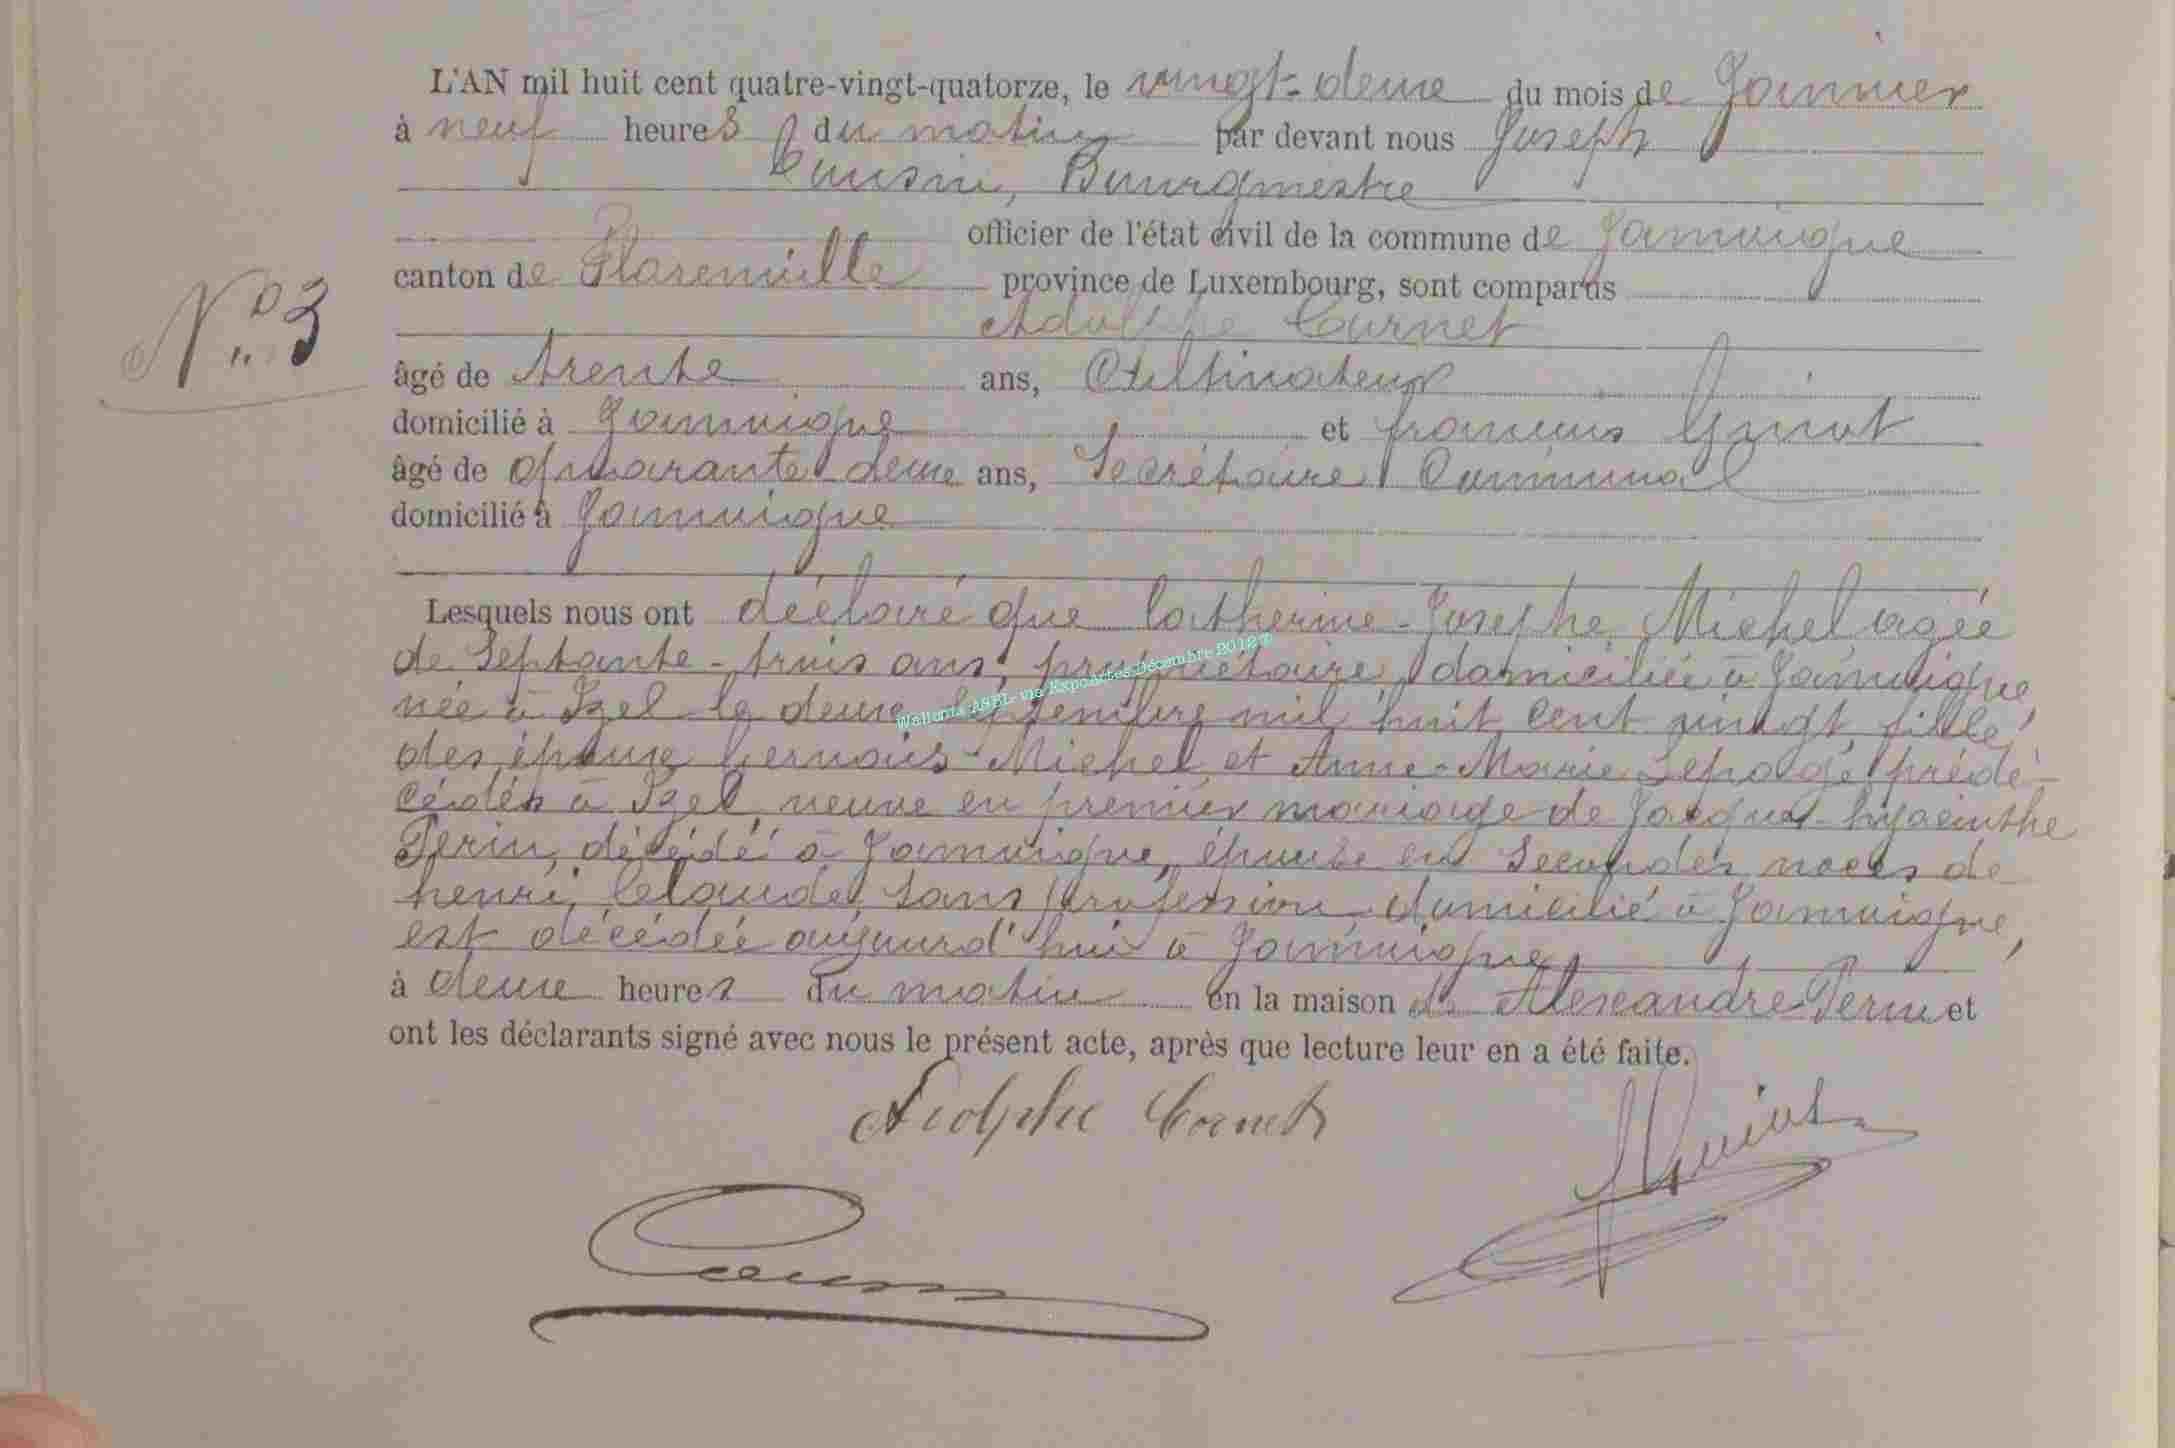 L'AN mil huit cent quatre-vingt-quatorze, le vingt-deux du mois de Janvier
à neuf heures du matin par devant nous Joseph
Cousin, Bourgmestre
officier de l'état civil de la commune de Jamoigne
canton de Florenville province de Luxembourg, sont comparus
Adolphe Cornet
N° 3
âgé de trente ans, Cultivateur
domicilié à Jamoigne et françois Guiot
âgé de quarante deux ans, Secrétaire Communal
domicilié à Jamoigne
Lesquels nous ont déclaré que Catherine-Josephe Michel agée
de Septante-trois ans, propriétaire, domiciliée à Jamoigne,
Wallonia ASBL via ExpoActes Décembre 2012 ©
née à Izel le deux Septembre mil huit cent vingt, fille
des époux Gervais-Michel et Anne-Marie Lepage prédé-
cédés à Izel, veuve en premier mariage de Jacques-hyacinthe
Perin, décédé à Jamoigne, épouse en Secondes noces de
henri Claude, Sans profession domicilié à Jamoigne,
est décédée aujourd'hui à Jamoigne,
à deux heures du matin en la maison de Alexandre Perin et
ont les déclarants signé avec nous le présent acte, après que lecture leur en a été faite.
Adolphe Cornet
Guiot